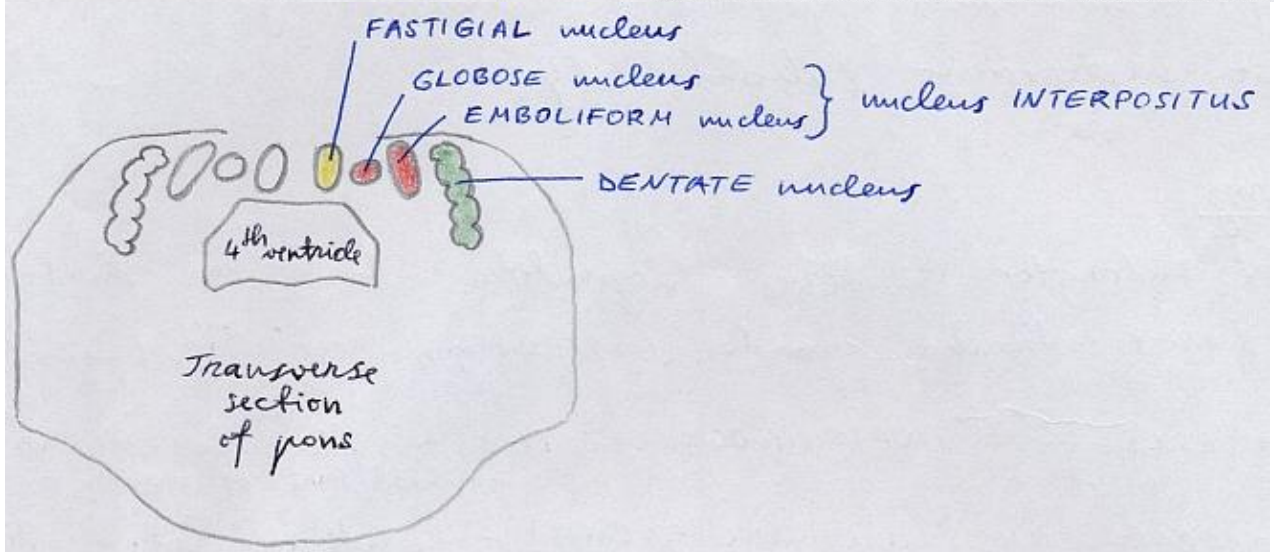 FASTIGIAL nucleus
GLOBOSE nucleus
EMBOLIFORM nucleus
nucleus INTERPOSITUS
DENTATE nucleus
4th ventricle
Transverse
section
of pons